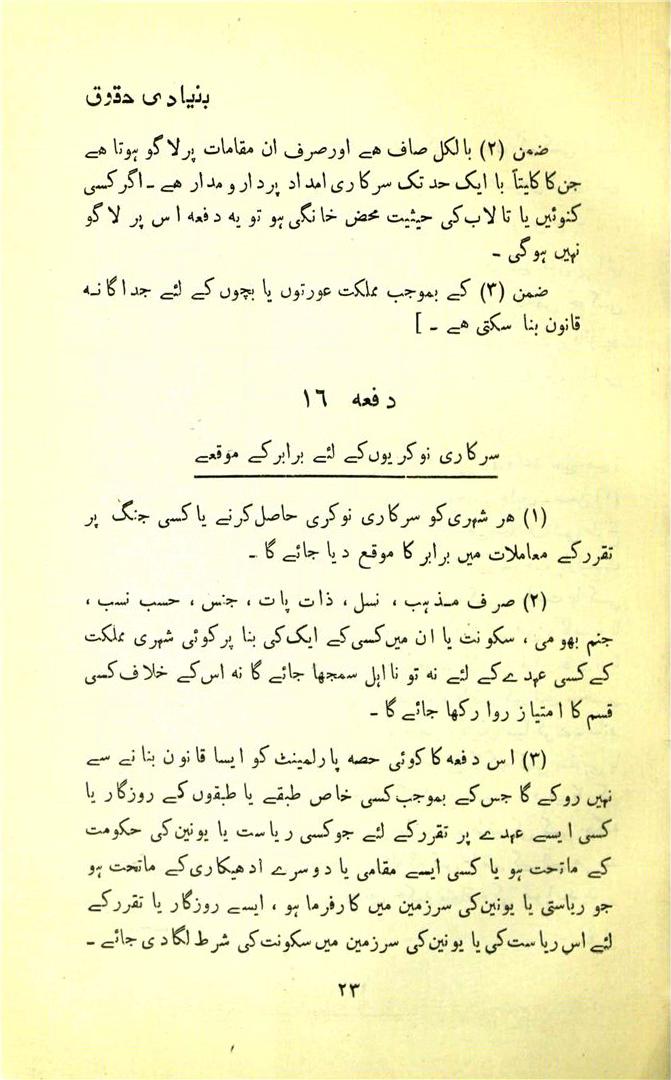 بنیادی حقوق
ضمن (۲) بالکل صاف ھے اورصرف ان مقامات پرلاگو ہوتا ھے
جن کا کلیتاً با ایک حد تک سرکاری امداد پردارومدار ھے ۔ اگرکسی
کنوئیں یا تالاب کی حیثیت محض خانگی ہو تو یہ دفعہ اس پر لاگو
نہیں ہوگی ۔
ضمن (۳) کے بموجب مملکت عورتوں یا بچوں کے لئے جداگانہ
قانون بنا سکتی ھے ۔ ]
دفعہ ۱۶
سرکاری نوکریوں کے لئے برابر کے موقعے
(۱) ھر شہری کو سرکاری نوکری حاصل کرنے یا کسی جنگ پر
تقررکے معاملات میں برابر کا موقع دیا جائے گا ۔
(۲) صرف مذہب ، نسل ، ذات پات ، جنس ، حسب نسب ،
جنم بھومی ، سکونت یا ان میں کسی کے ایک کی بنا پر کوئی شہری مملکت
کے کسی عہدے کے لئے نہ تو نااہل سمجھا جائے گا نہ اس کے خلاف کسی
قسم کا امتیاز روا رکھا جائے گا ۔
(۳) اس دفعہ کا کوئی حصہ پارلمینٹ کو ایسا قانون بنانے سے
نہیں روکے گا جس کے بموجب کسی خاص طبقے یا طبقوں کے روزگار یا
کسی ایسے عہدے پر تقررکے لئے جو کسی ریاست یا یونین کی حکومت
کے ماتحت ہو یا کسی ایسے مقامی یا دوسرے ادھیکاری کے ماتحت ہو
جو ریاستی یا یونین کی سرزمین میں کارفرما ہو ، ایسے روزگار یا تقررکے
لئے اس ریاست کی یا یونین کی سرزمین میں سکونت کی شرط لگادی جائے ۔
۲۳